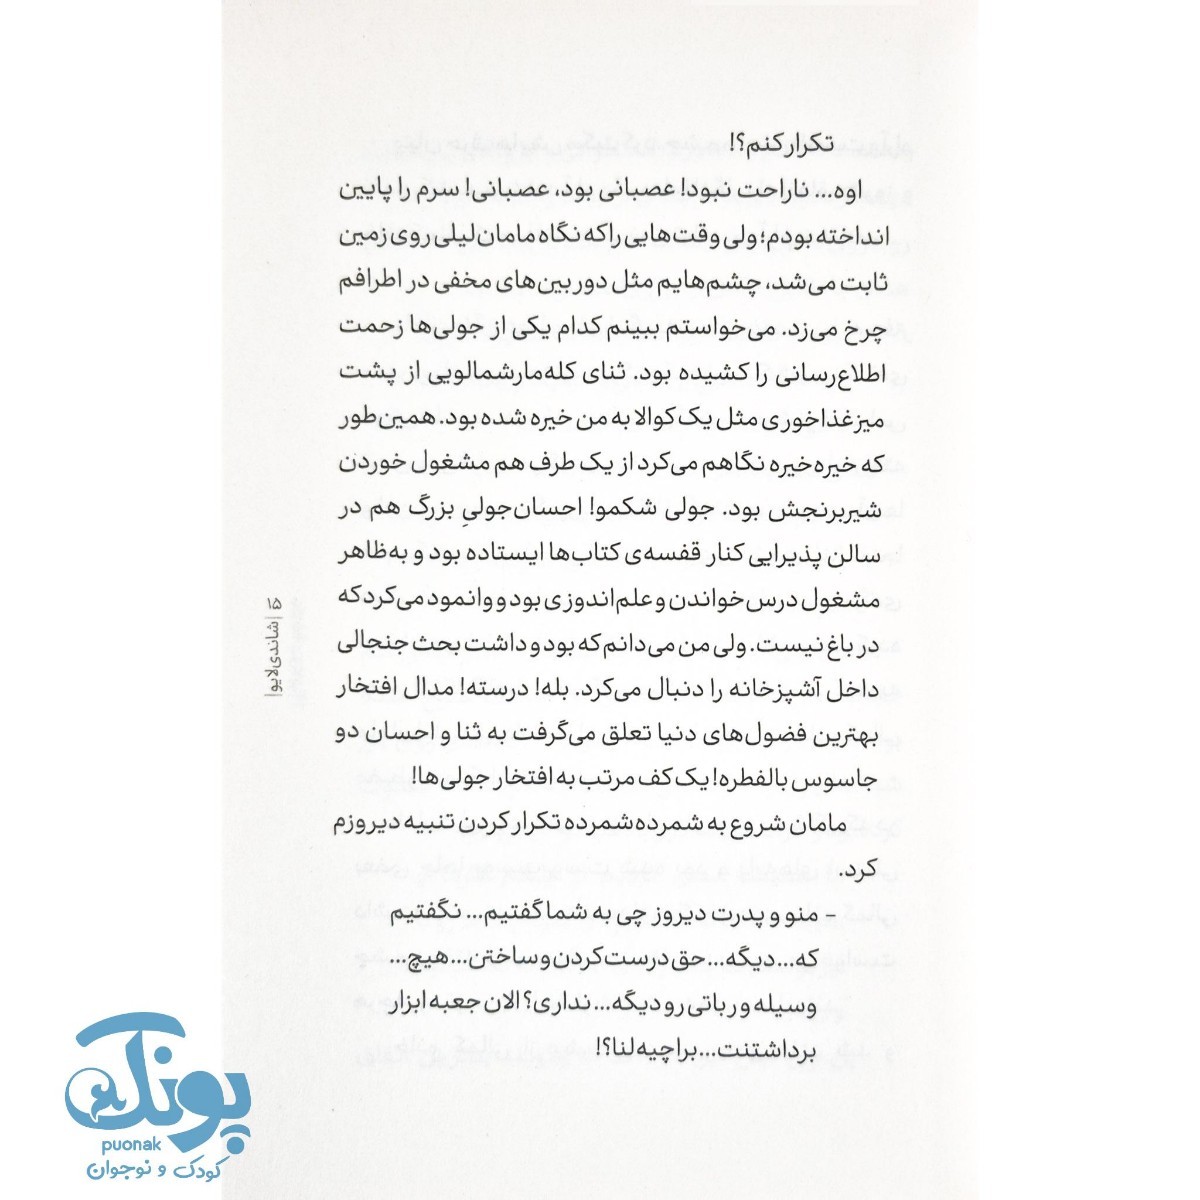 تکرار کنم؟!
اوه... ناراحت نبود! عصبانی بود، عصبانی! سرم را پایین
انداخته بودم؛ ولی وقت‌هایی را که نگاه مامان‌لیلی روی زمین
ثابت می‌شد، چشم‌هایم مثل دوربین‌های مخفی در اطرافم
چرخ می‌زد. می‌خواستم ببینم کدام یکی از جولی‌ها زحمت
اطلاع‌رسانی را کشیده بود. ثنای کله‌مارشمالویی از پشت
میز غذاخوری مثل یک کوالا به من خیره شده بود. همین‌طور
که خیره‌خیره نگاهم می‌کرد از یک طرف هم مشغول خوردن
شیربرنجش بود. جولی شکمو! احسان‌جولیِ بزرگ هم در
سالن پذیرایی کنار قفسه‌ی کتاب‌ها ایستاده بود و به‌ظاهر
مشغول درس خواندن و علم‌اندوزی بود و وانمود می‌کرد که
در باغ نیست. ولی من می‌دانم که بود و داشت بحث جنجالی
داخل آشپزخانه را دنبال می‌کرد. بله! درسته! مدال افتخار
بهترین فضول‌های دنیا تعلق می‌گرفت به ثنا و احسان دو
جاسوس بالفطره! یک کف مرتب به افتخار جولی‌ها!
مامان شروع به شمرده‌شمرده تکرار کردن تنبیه دیروزم
کرد.
- منو و پدرت دیروز چی به شما گفتیم... نگفتیم
که... دیگه... حق درست کردن و ساختن... هیچ...
وسیله و رباتی رو دیگه... نداری؟ الان جعبه ابزار
برداشتنت... برا چیه لنا؟!
|شاندی‌لایو|
پونک
puonak
کودک و نوجوان